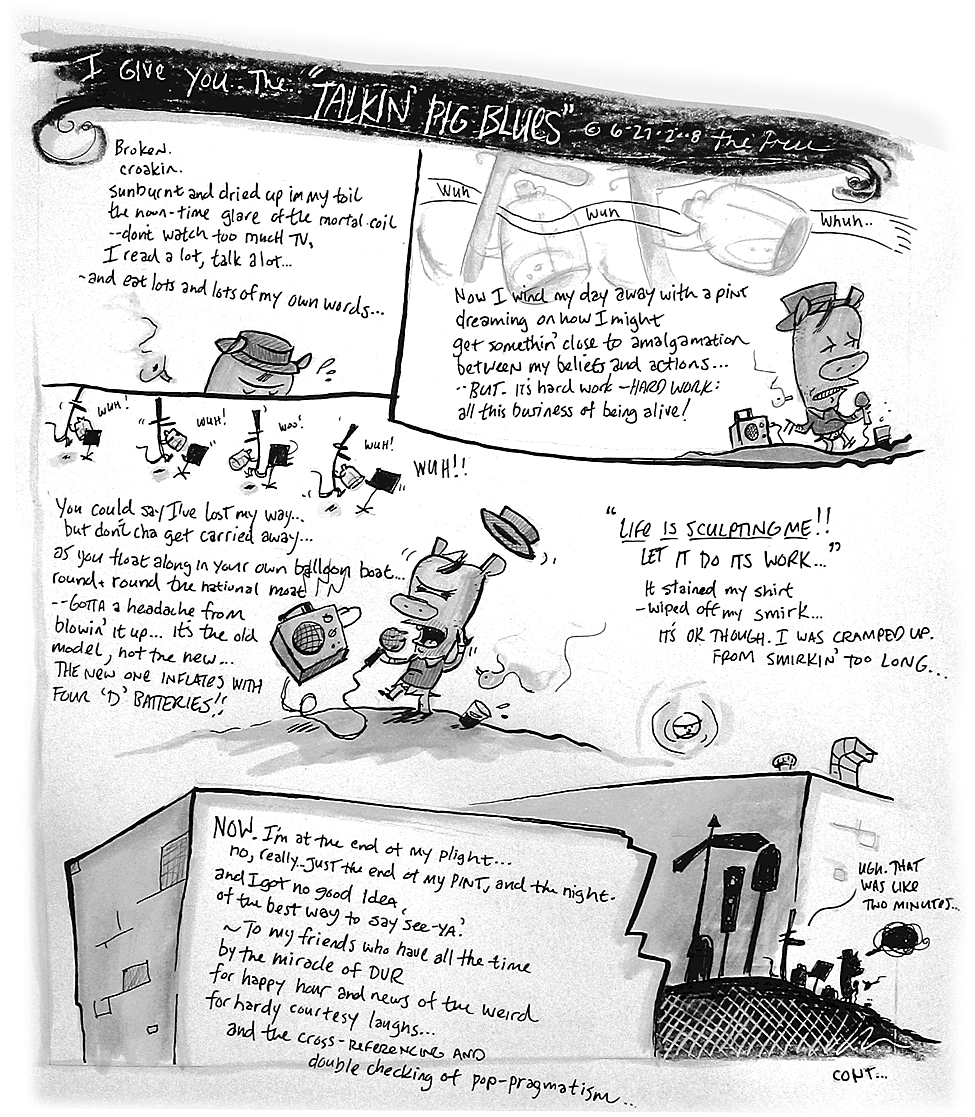 I GIVE YOU THE "TALKIN' PIG BLUES" © 6-27-2008
Broken.
croakin.
sunburnt and dried up in my toil
the noon-time glare of the mortal coil
--don't watch too much TV,
I read a lot, talk a lot...
-and eat lots and lots of my own words...
Wuh
Wuh
Whuh..
Now I wind my day away with a pint
dreaming on how I might
get somethin' close to amalgamation
between my beliefs and actions...
--BUT. it's hard work -HARD WORK:
all this business of being alive!
WUH!
WUH!
WOO!
WUH!
WUH!!
You could say I've lost my way...
but dontcha get carried away...
as you float along in your own balloon boat...
round + round the national moat
--GOTTA a headache from
blowin' it up... it's the old
model, not the new...
THE NEW ONE INFLATES WITH
FOUR 'D' BATTERIES!!
"LIFE IS SCULPTING ME!!
LET IT DO ITS WORK..."
It stained my shirt
-wiped off my smirk...
IT'S OK THOUGH. I WAS CRAMPED UP.
FROM SMIRKIN' TOO LONG...
NOW. I'm at the end of my plight...
no, really..JUST the end of my PINT, and the night.
and I got no good Idea,
of the best way to say 'see-YA'.
~To my friends who have all the time
by the miracle of DUR
for happy hour and news of the weird
for hardy courtesy laughs...
and the cross-REFERENCING AND
double checking of pop-pragmatism...
UGH. THAT
WAS LIKE
TWO MINUTES...
CONT...